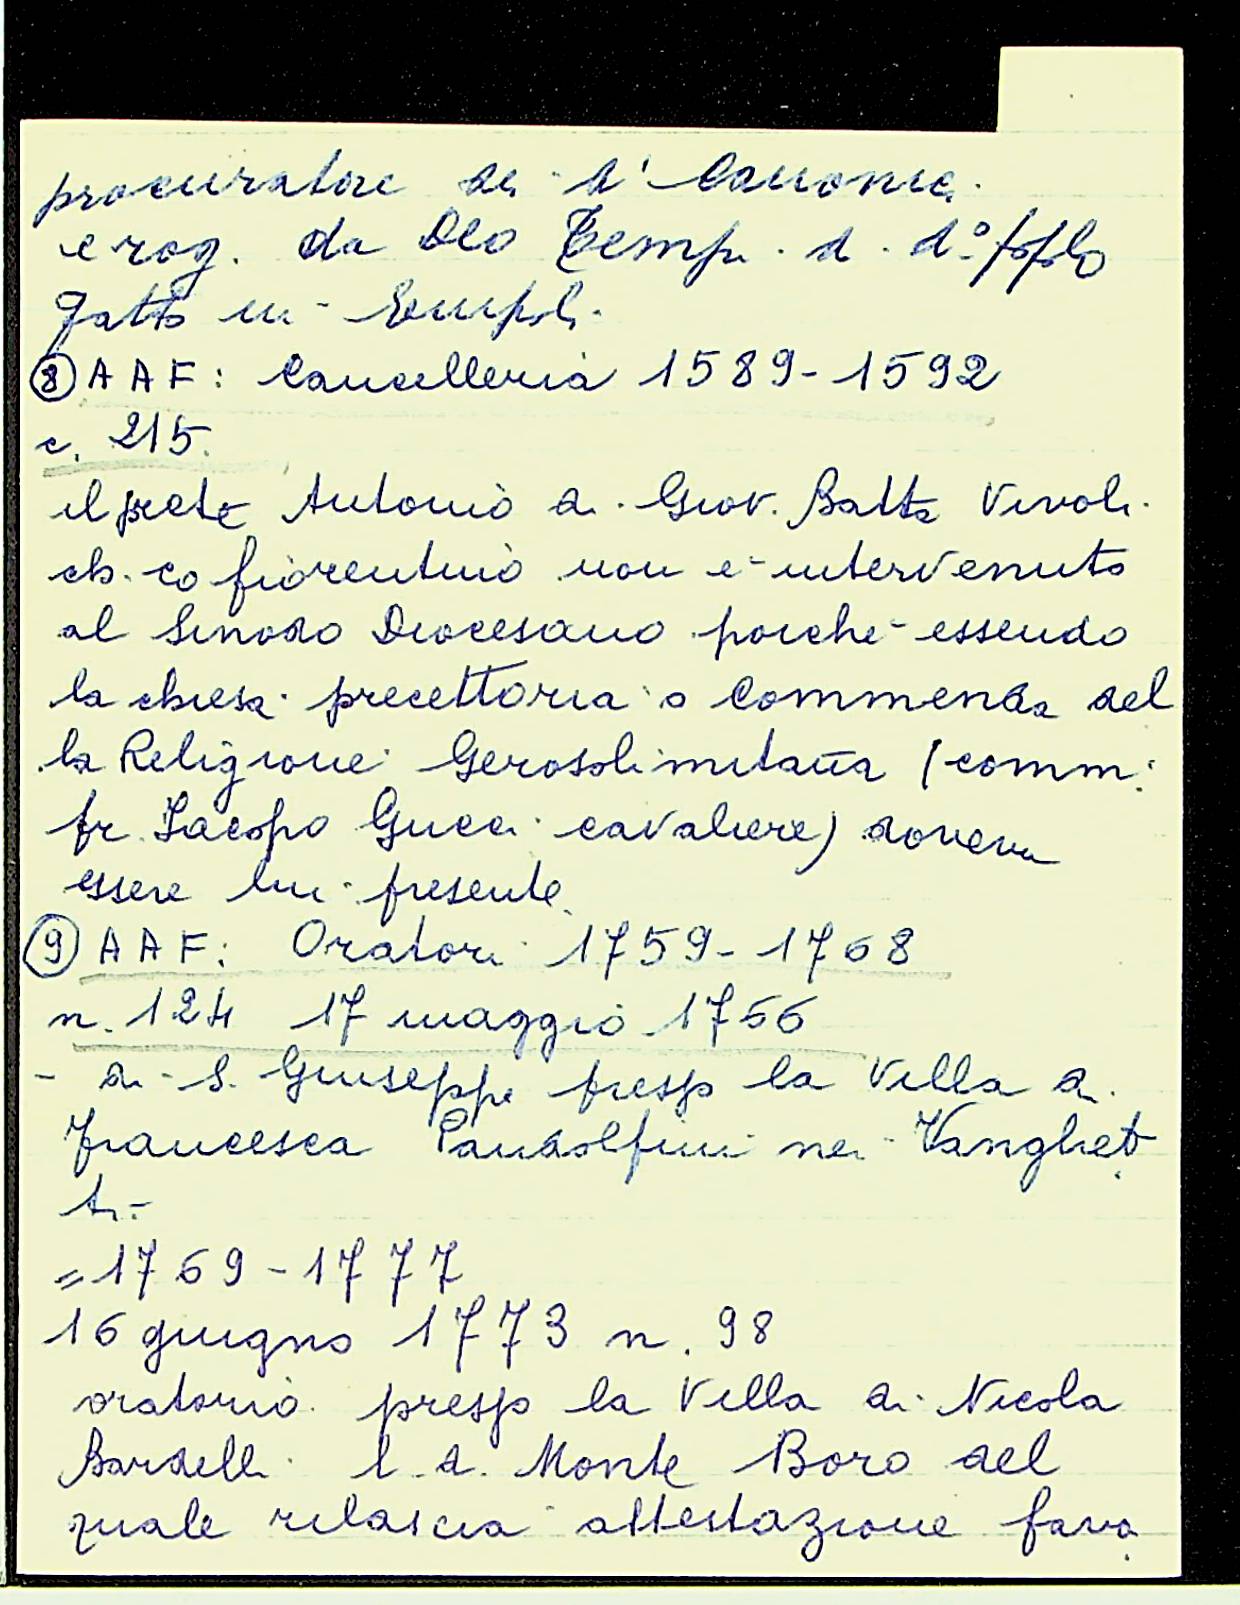 procuratore di d' Canonica
e rog. da Deo Temp. d. d.º
Gatto in Empoli.
⑧ A A F: Cancelleria 1589-1592
c. 215.
il prete Antonio di Giov. Batta Vivoli
ch. co fiorentino non è intervenuto
al Sinodo Diocesano poiché essendo
la chiesa precettoria o Commenda del
la Religione Gerosolimitana (comm:
fr. Iacopo Gucci cavaliere) doveva
essere lui presente.
⑨ A A F: Oratori 1759-1768
n. 124 17 maggio 1766
- di S. Giuseppe presso la Villa di
Francesca Pandolfini nei Vanghet
ti.-
= 1769-1777
16 giugno 1773 n. 98
oratorio presso la Villa di Nicola
Bardelli l. d. Monte Boro del
quale rilascia attestazione favo